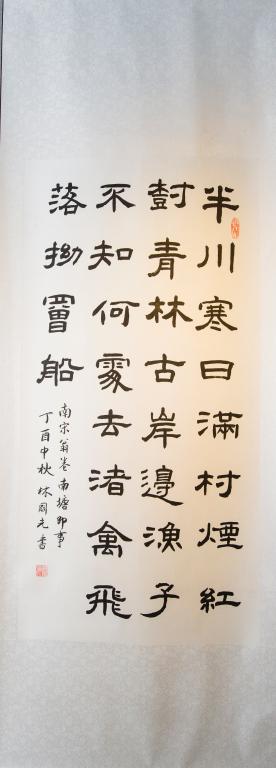 半川寒日滿村煙紅
尌青林古岸邊漁子
不知何處去渚禽飛
落拗罾船
南宋翁卷南塘即事
丁酉中秋林國元書